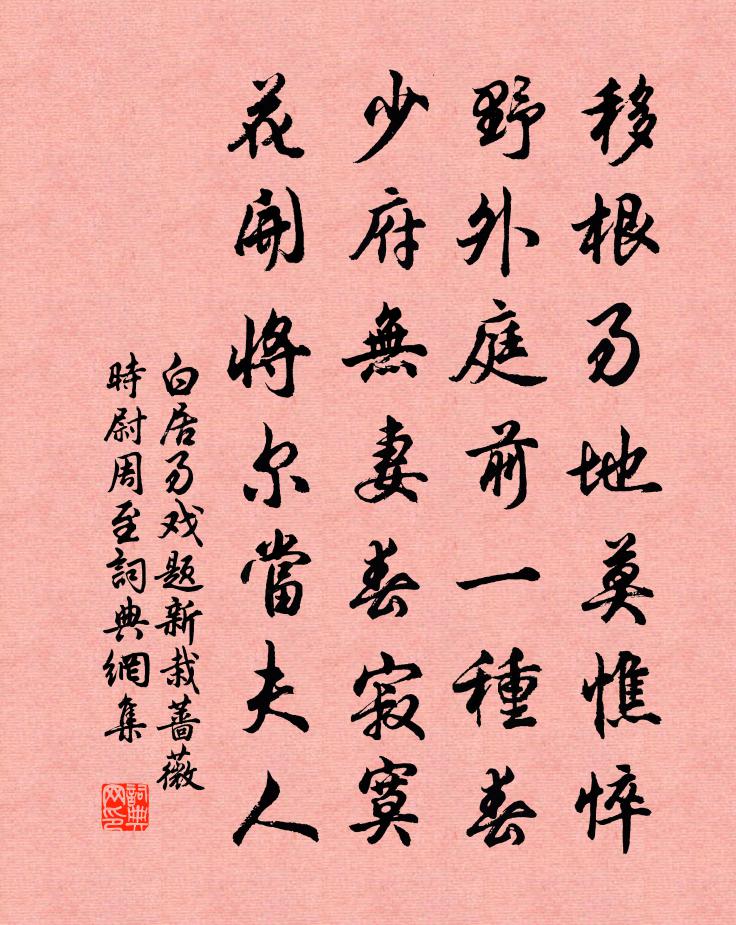 移根易地莫憔悴
野外庭前一種春
少府無妻春寂寞
花開將尔當夫人
白居易戏題新栽薔薇
時尉周至詞典網集
詞典网印